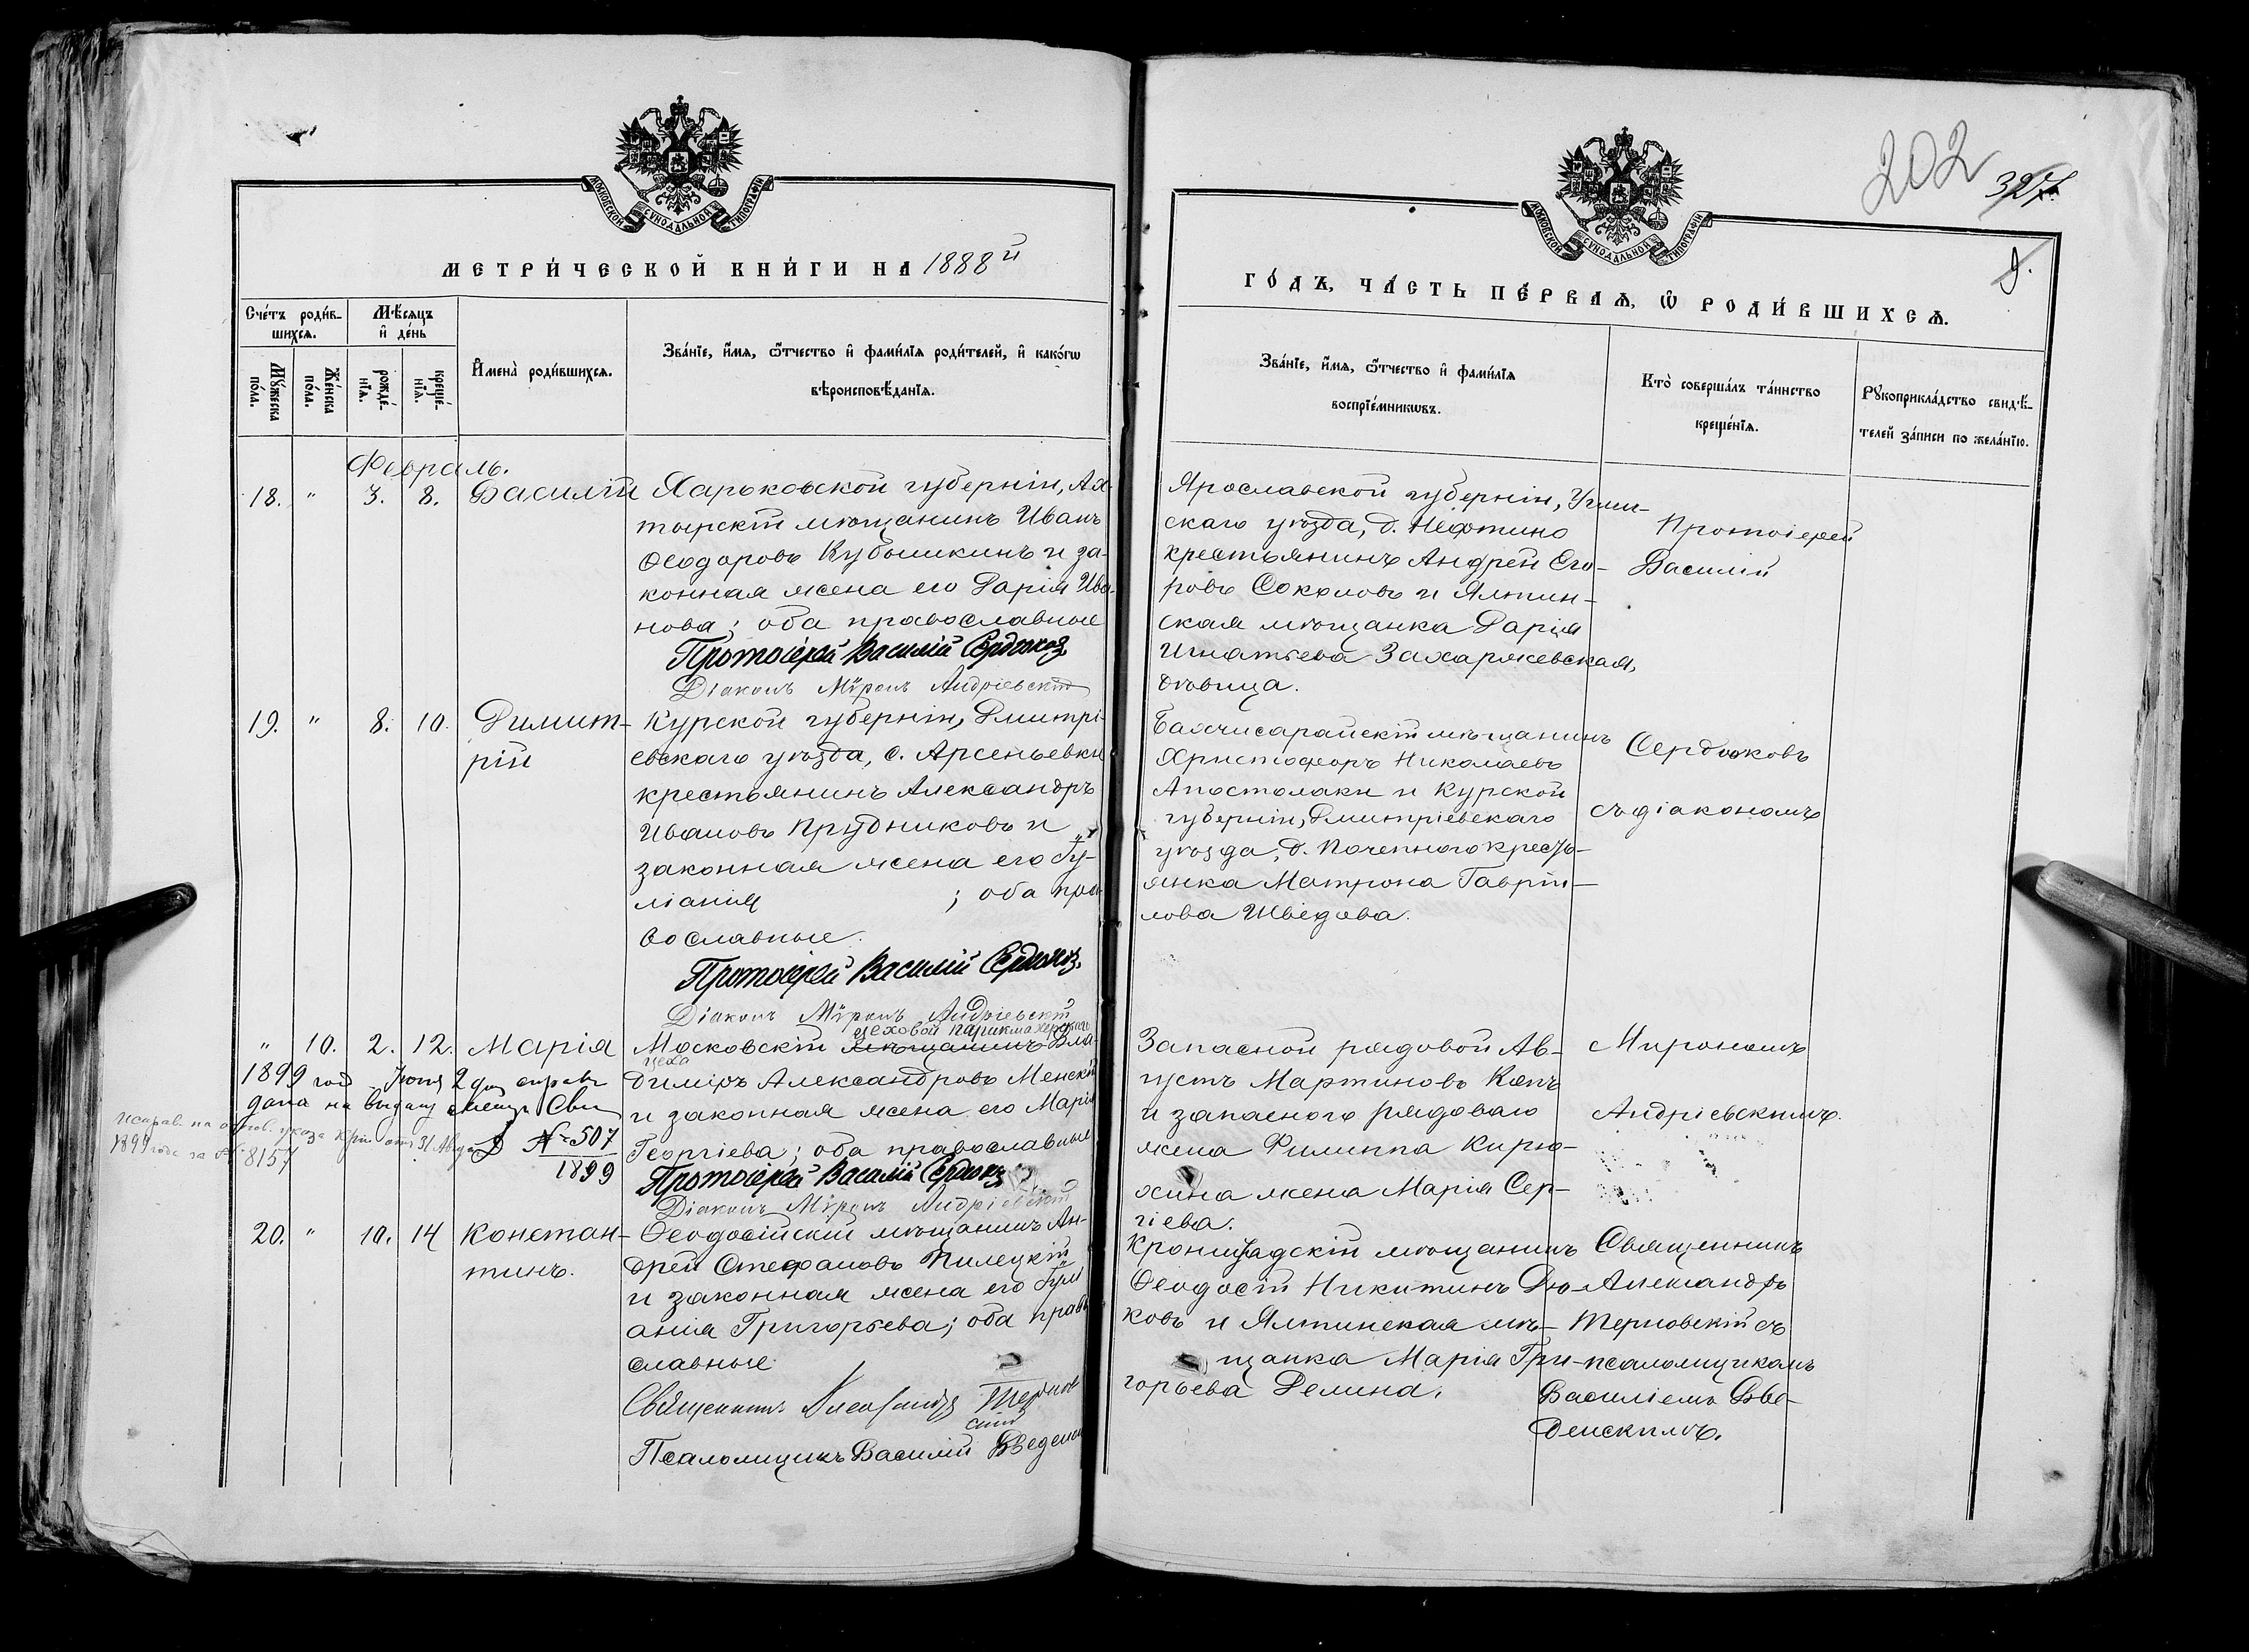 МОСКОВСКОЙ СѴНОДАЛЬНОЙ ТИПОГРАФІИ
МЕТРИ́ЧЕСКОЙ КНИ́ГИ НА 1888й
Сче́тъ роди́в-
шихсѧ.
Мѣ́сѧцъ
и҆ де́нь
Мꙋ́жеска
по́ла.
Же́нска
по́ла.
рожде́-
нїѧ.
креще́-
нїѧ.
И҆мена̀ роди́вшихсѧ.
Зва́нїе, и҆́мѧ, ѻ҆́тчество и҆ фами́лїѧ роди́телей, и҆ како́гѡ
вѣроисповѣ́данїѧ.
Февраль.
18. " 3. 8. Василій Харьковской губерніи, Ах-
тырскій мѣщанинъ Иванъ
Ѳеодоровъ Кубышкинъ и за-
конная жена его Дарія Ива-
нова; оба православные
Протоіерей Василій Сердюковъ
Діаконъ Мѵронъ Андріевскій
19. " 8. 10. Димит- Курской губерніи, Дмитрі-
рій евскаго уѣзда, с. Арсеньевки
крестьянинъ Александръ
Ивановъ Прудниковъ и
законная жена его Іу-
ліанія ; оба пра-
вославные.
Протоіерей Василій Сердюковъ.
Діаконъ Мѵронъ Андріевскій
цеховой парикмахерскаго
" 10. 2. 12. Марія Московскій мѣщанинъ Вла-
цеха
диміръ Александровъ Менскій
и законная жена его Марія
Георгіева; оба православные
Протоіерей Василій Сердюковъ
Діаконъ Мѵронъ Андріевскій
1899 года Іюня 2 дня справка
дана на выдачу Свид
№ 507
1899
Исправ. на основ. указа от 31 Авг
1899 года за № 8157
20. " 10. 14 Констан- Ѳеодосійскій мѣщанинъ Ан-
тинъ. дрей Стефановъ Пилецкій
и законная жена его Іулі
анія Григорьева; оба право
славные.
Священникъ Александръ Тернов
скій
Псаломщикъ Василій Введенск
202
327.
9.
МОСКОВСКОЙ СѴНОДАЛЬНОЙ ТИПОГРАФІИ
ГО́ДЪ, ЧА́СТЬ ПЕ́РВАѦ, Ѡ҆ РОДИ́ВШИХСѦ.
Зва́нїе, и҆́мѧ, ѻ҆́тчество и҆ фами́лїѧ
воспрїе́мникѡвъ.
Кто̀ соверша́лъ та́инство
креще́нїѧ.
Рꙋкоприкла́дство свидѣ́-
телей за́писи по жела́нїю.
Ярославской губерніи, Углич-
скаго уѣзда, д. Нефтино
крестьянинъ Андрей Его-
ровъ Соколовъ и Ялтин-
ская мѣщанка Дарія
Игнатьева Захаржевская,
дѣвица.
Протоіерей
Василій
Бахчисарайскій мѣщанинъ
Христофоръ Николаевъ
Апостолаки и Курской
губерніи, Дмитріевскаго
уѣзда, д. Почепного кресть-
янка Матрона Гаврі-
лова Шведова.
Сердюковъ
съ діакономъ
Запасной рядовой Ав-
густъ Мартиновъ Капъ
и запасного рядоваго
жена Филиппа Кирю-
хина жена Марія Сер-
гіева.
Мирономъ
Андріевскимъ.
Кронштадскій мѣщанинъ
Ѳеодосій Никитинъ Дю-
ковъ и Ялтинская мѣ-
щанка Марія Гри-
горьева Делина.
Священникъ
Александръ
Терновскій съ
псаломщикомъ
Василіемъ Вве-
денскимъ.